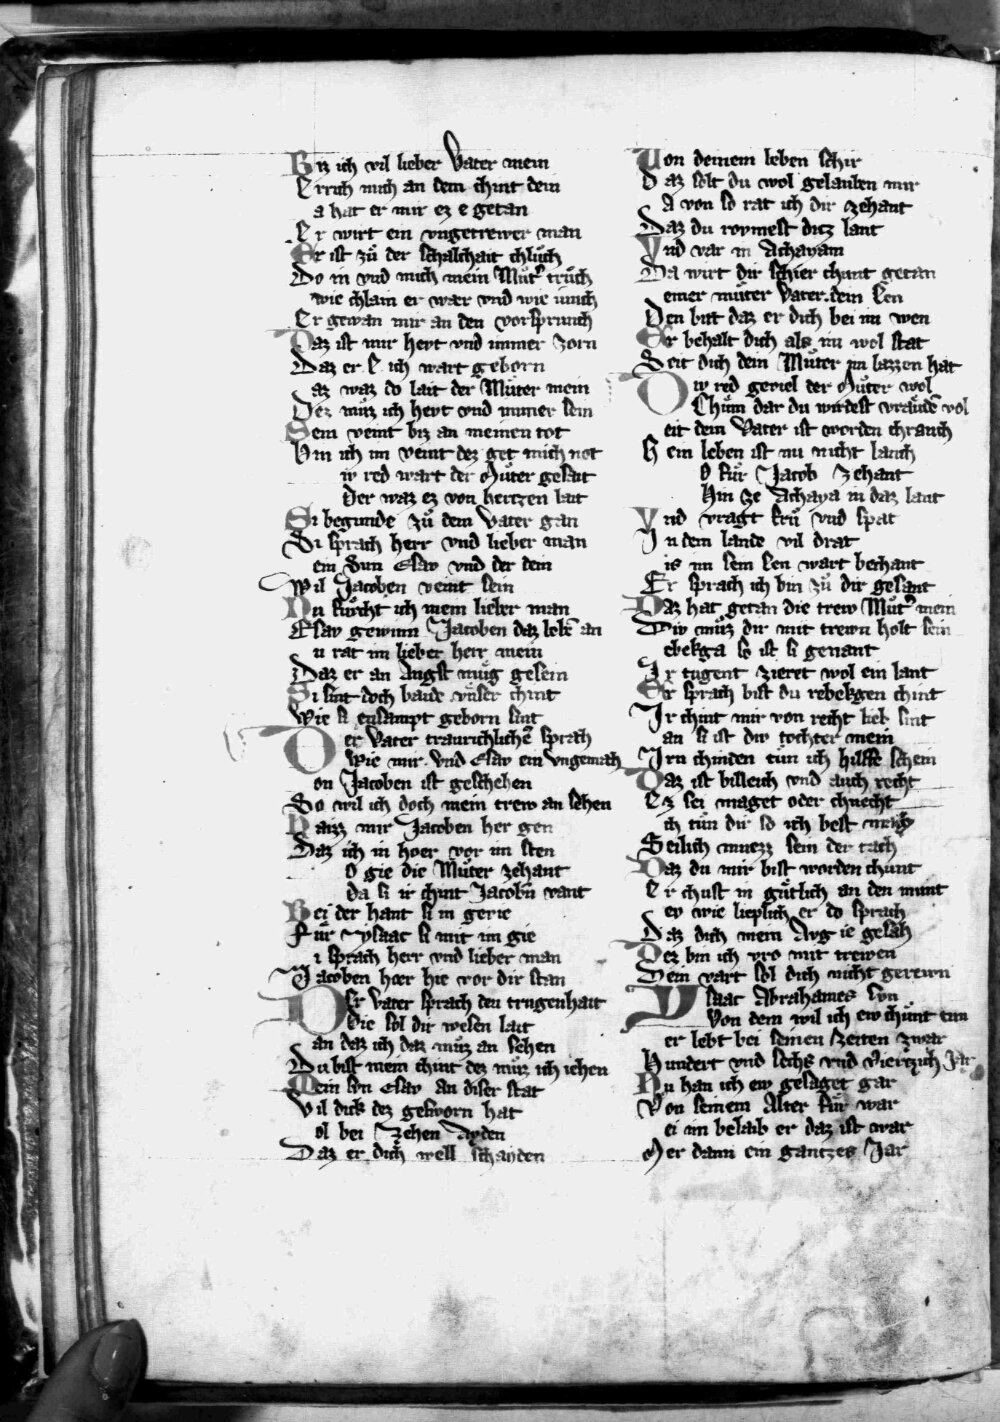 Biz ich vil lieber Vater mein
Errich mich an dem chint dein
a hat er mir ez e getan
Er wirt ein vngetrewer man
Er ist zů der schalchait chlůch
Do in vnd mich mein Můter trůch
wie chlain er wær vnd wie iunch
Er gewan mir an den vorsprunch
Daz ist mir hevt vnd immer zorn
Daz er E ich wart geborn
az waz do lait der Můter mein
Dez můz ich hevt vnd immer sein
Sein veint biz an meinen tot
Hin ich im veint dez get mich not
iv red wart der Můter gesait
Der waz ez von hertzen lait
Si begunde zů dem Vater gan
Si sprach herr vnd lieber man
ein Svn Esav vnd der dein
Wil Jacoben veint sein
Nu fůrcht ich mein lieber man
Esav gewinn Jacoben daz lebñ an
u rat im lieber herr mein
Daz er an Angst můg gesein
Si sint doch baide vnser chint
Wie si ensampt geborn sint
Der Vater traurichlichñ sprach
Wie mir vnd Esav ein vngemach
on Jacoben ist geschehen
So wil ich doch mein trew an sehen
Haizz mir Jacoben her gen
Daz ich in hoer vor im sten
O gie die Můter zehant
Da si ir chint Jacobñ vant
Bei der hant si in gevie
Fůr ysaac si mit im gie
i sprach herr vnd lieber man
Jacoben hœr hie vor dir stan
Der Vater sprach den trugenhait
Die sol dir wesen lait
an daz ich daz můz an sehen
Du bist mein chint dez můz ich iehen
Mein svn Esav an diser stat
Vil dick dez gesworn hat
ol bei zehen Ayden
Daz er dich well schayden
Von deinem leben schir
Daz solt du wol gelauben mir
A von so rat ich dir zehant
Daz du rovmest ditz lant
Vnd var in Achayam
Da wirt dir schier chunt getan
einer můter Vater dem sen
Den bitt daz er dich bei im wen
Er behalt dich als im wol stat
Seit dich dein Můter im lazzen hat
Div red geviel der Můter wol
Chům dar du wirdest vraudñ vol
eit dein Vater ist worden chranch
Sein leben ist nu nicht lanch
O fůr Jacob zehant
Hin ze Achaya in daz lant
Vnd vragt frů vnd spat
In dem lande vil drat
is im sein sen wart bechant
Er sprach ich bin zů dir gesant
Daz hat getan die trew Můter mein
Div můz dir mit trewn holt sein
ebekga so ist si genant
Ir tugent zieret wol ein lant
Er sprach bist du rebekgen chint
Ir chint mir von recht lieb sint
an si ist div tochter mein
Irn chinden tůn ich hilffe schein
Daz ist billeich vnd auch recht
Ez sei maget oder chnecht
ch tůn dir so ich best mach
Seilich muezz sein der tach
Daz du mir bist worden chunt
Er chust in gůtlich an den munt
ey wie lieplich er do sprach
Daz dich mein Avg ie gesach
Dez bin ich vro mit trewen
Dein vart sol dich nicht gerewn
Ysaac Abrahames svn
Von dem wil ich ew chunt tun
er lebt bei seinen zeiten zwar
Hundert vnd sechs vnd viertzich Jar
Nu han ich ew gesaget gar
Von seinem Alter fůr war
ei im belaib er daz ist war
Mer dann ein gantzes Jar